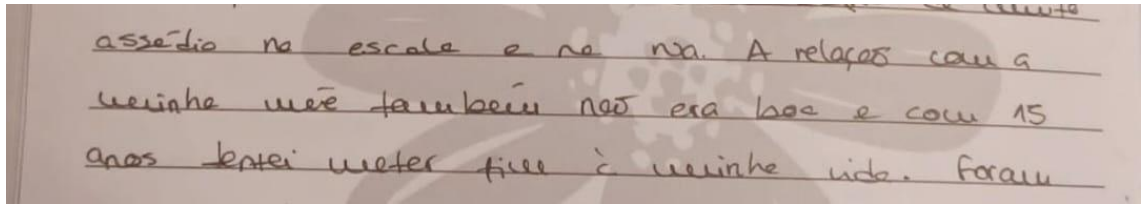 assédio na escola e na rua. A relação com a
minha mãe também não era boa e com 15
anos tentei meter fim à minha vida. Foram